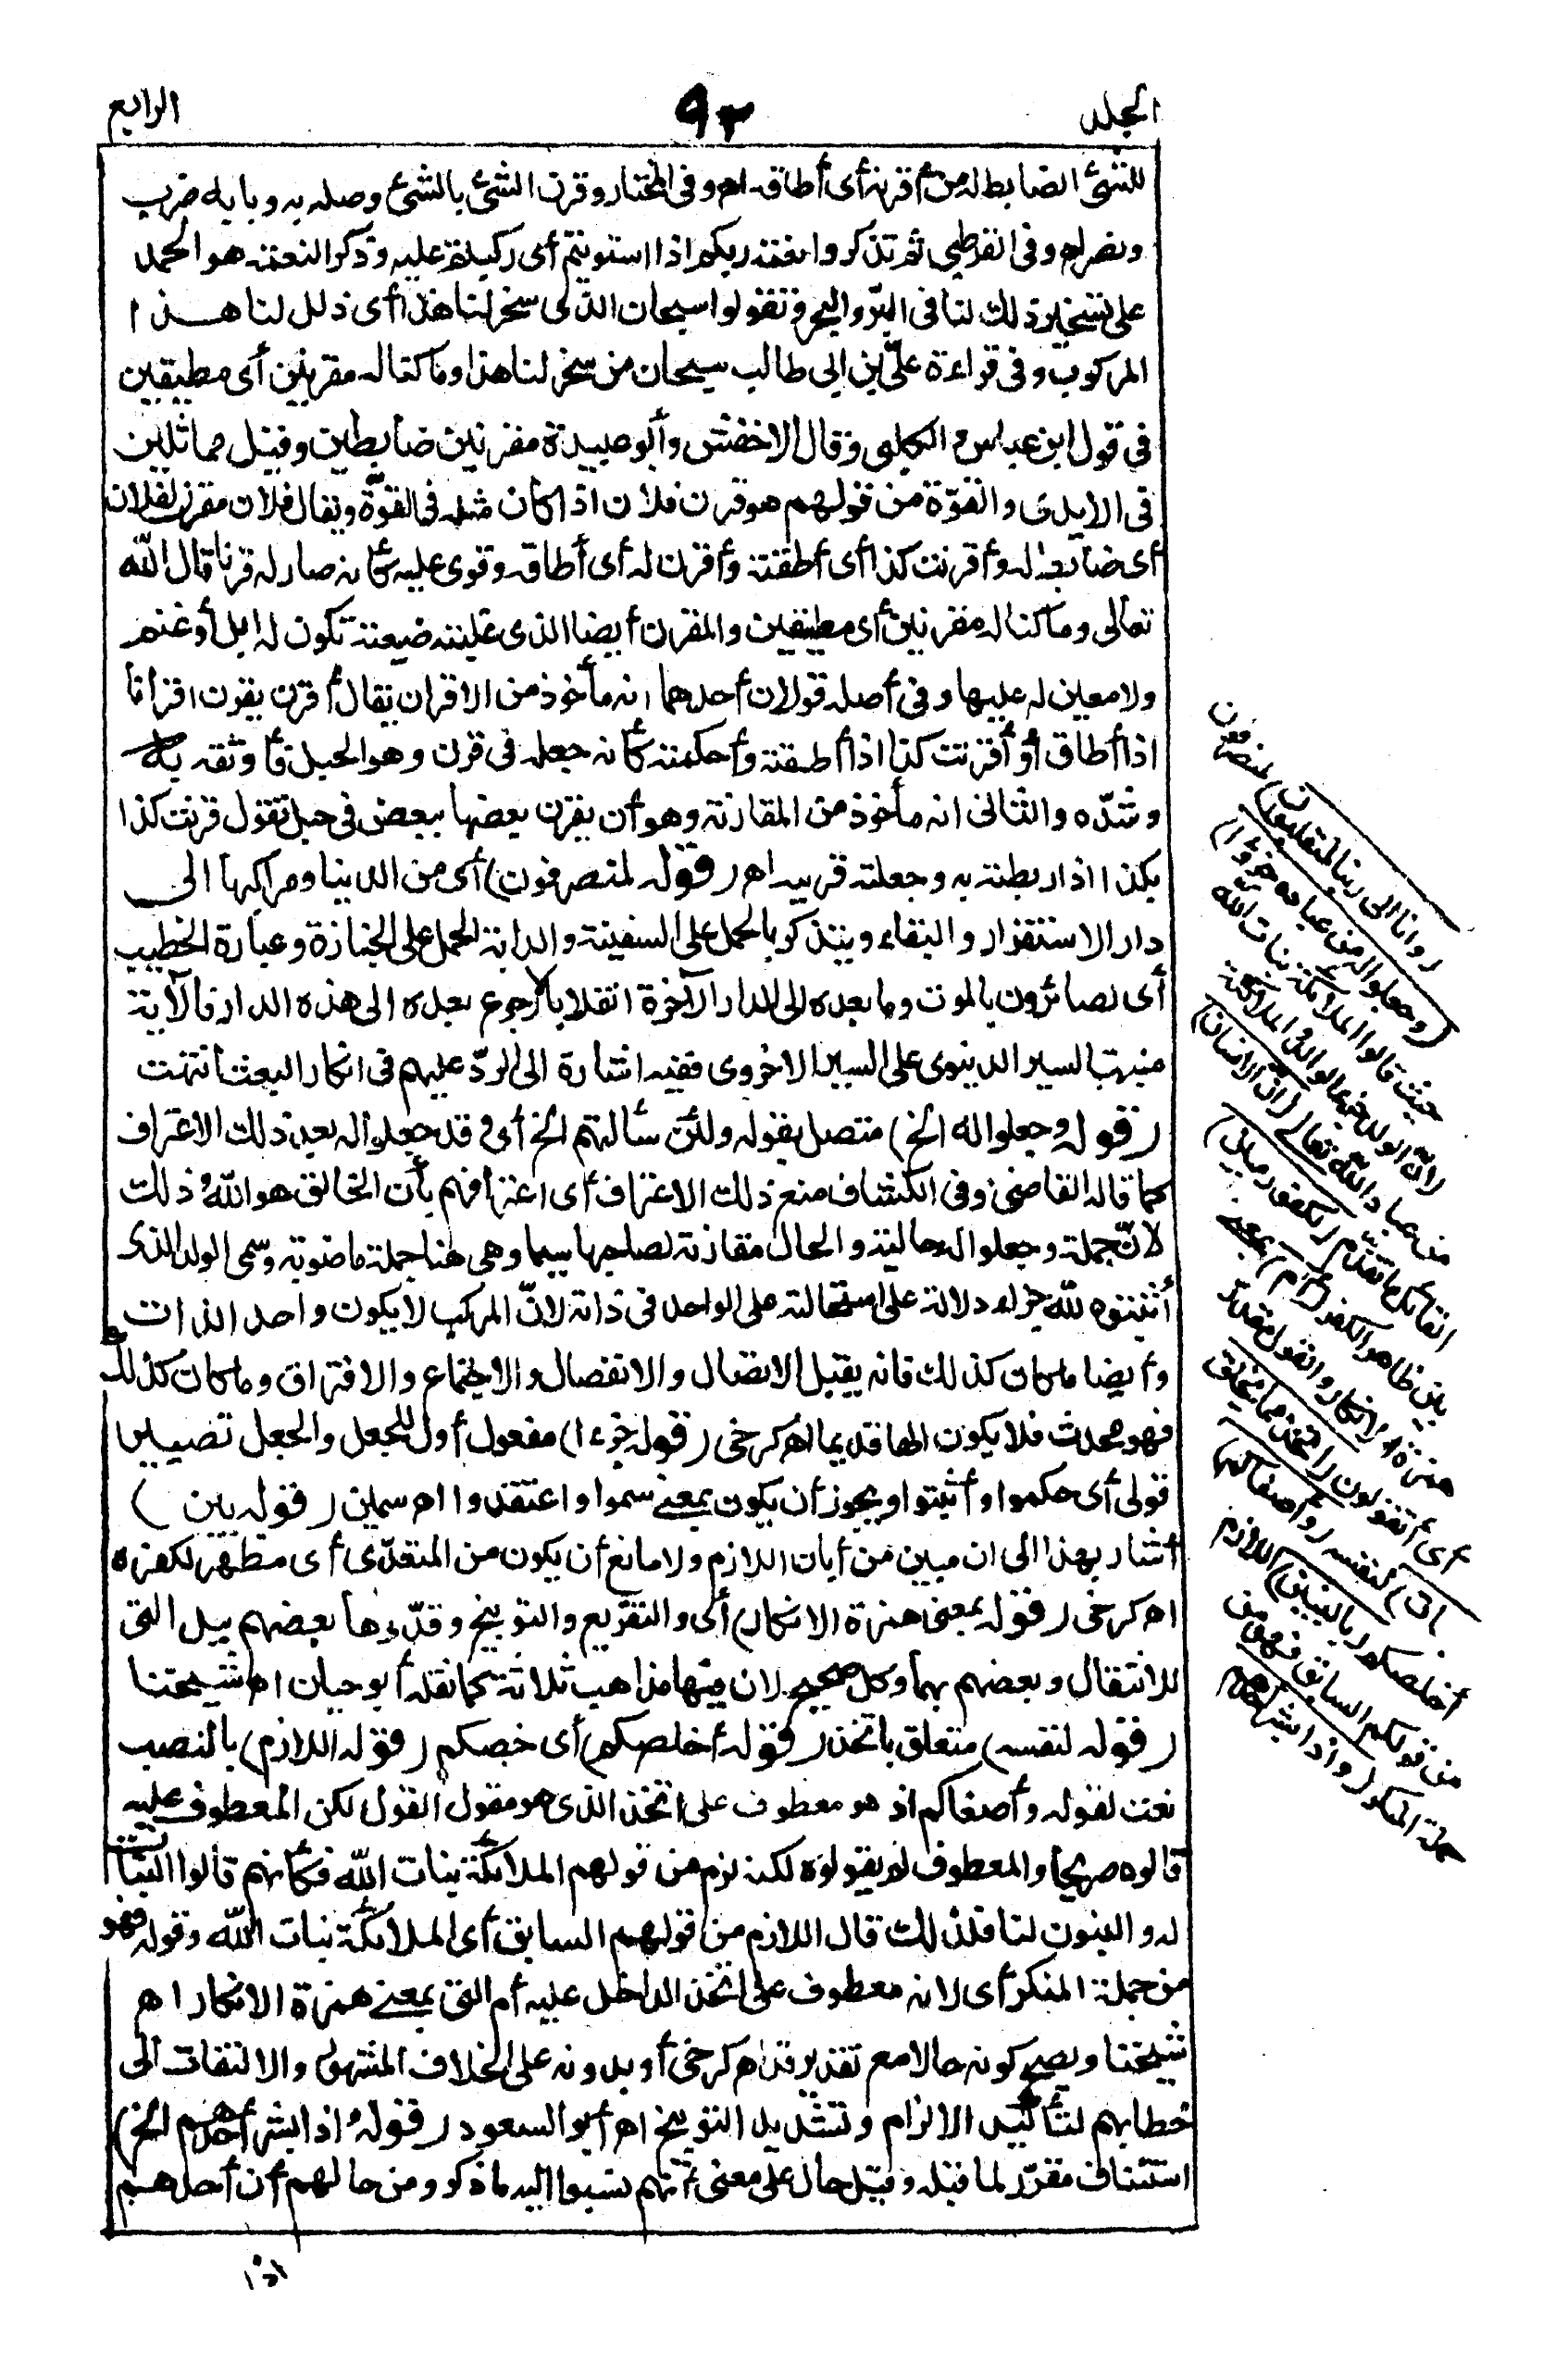 الجلد ٩٢ الرابع
للشئ الضابط له من أقرنه أى أطاقه اهـ وفى المختار وقرن الشئ بالشئ وصله به وبابه ضرب
ونصر اهـ وفى القرطبى ثم تذكروا نعمة ربكم اذا استويتم أى ركبتم عليه وذكر النعمة هو الحمد
على تسخير ذلك لنا فى البرّ والبحر وتقولوا سبحان الذى سخر لنا هذا أى ذلل لنا هذا
المركوب وفى قراءة علىّ بن ابى طالب سبحان من سخر لنا هذا وما كنا له مقرنين أى مطيقين
فى قول ابن عباس والكلبى وقال الاخفش وأبو عبيدة مقرنين ضابطين وقيل مماثلين
فى الايدى والقوّة من قولهم هو قرن فلان اذا كان مثله فى القوّة ويقال فلان مقرن لفلان
أى ضابط له وأقرنت كذا أى أطقته وأقرن له أى أطاقه وقوى عليه كأنه صار له قرنا قال الله
تعالى وما كنا له مقرنين أى مطيقين والمقرن أيضا الذى غلبته ضيعته تكون له ابل أو غنم
ولا معين له عليها وفى أصله قولان أحدهما انه مأخوذ من الاقران يقال أقرن يقرن اقرانا
اذا أطاق أو أقرنت كذا اذا أطقته وأحكمته كأنه جعله فى قرن وهو الحبل فأوثقه به
وشدّه والثانى انه مأخوذ من المقارنة وهو أن يقرن بعضها ببعض فى حبل تقول قرنت كذا
بكذا اذا ربطته به وجعلته قرينه اهـ (قوله لمنصرفون) أى من الدنيا ومراكبها الى
دار الاستقرار والبقاء ويتذكر بالحمل على السفينة والدابة الحمل على الجنازة وعبارة الخطيب
أى لصائرون بالموت وما بعده الى الدار الآخرة انقلابا لا رجوع بعده الى هذه الدار فالآية
منبهة بالسير الدنيوى على السير الاخروى ففيه اشارة الى الردّ عليهم فى انكار البعث انتهت
(قوله وجعلوا له الخ) متصل بقوله ولئن سألتهم الخ أى وقد جعلوا له بعد ذلك الاعتراف
كما قاله القاضى وفى الكشاف منع ذلك الاعتراف أى اعترافهم بأن الخالق هو الله وذلك
لانّ جملة وجعلوا له حالية والحال مقارنة لصاحبها سيما وهى هنا جملة ماضوية وسمى الولد الذى
أثبتوه لله جزاء دلالة على استحالته على الواحد فى ذاته لانّ المركب لا يكون واحد الذات
وأيضا ما كان كذلك فانه يقبل الاتصال والانفصال والاجتماع والافتراق وما كان كذلك
فهو محدث فلا يكون الها قديما اهـ كرخى (قوله جزءا) مفعول أول للجعل والجعل تصيير
قولى أى حكموا وأثبتوا ويجوز أن يكون بمعنى سموا واعتقدوا اهـ سمين (قوله بين)
أشار بهذا الى ان مبين من أبان اللازم ولا مانع أن يكون من المتعدّى أى مظهر لكفره
اهـ كرخى (قوله بمعنى همزة الانكار) أى والتقريع والتوبيخ وقدّرها بعضهم ببل التى
للانتقال وبعضهم بهما وكل صحيح لان فيها مذاهب ثلاثة كما نقله أبو حيان اهـ شيخنا
(قوله لنفسه) متعلق باتخذ (قوله أخلصكم) أى خصكم (قوله اللازم) بالنصب
نعت لقوله وأصفاكم اذ هو معطوف على اتخذ الذى هو مقول القول لكن المعطوف عليه
قالوه صريحا والمعطوف لم يقولوه لكنه لزم من قولهم الملائكة بنات الله فكأنهم قالوا البنات
له والبنون لنا فلذلك قال اللازم من قولهم السابق أى الملائكة بنات الله وقوله فهو
من جملة المنكر أى لانه معطوف على اتخذ الداخل عليه أم التى بمعنى همزة الانكار اهـ
شيخنا ويصح كونه حالا مع تقدير قد اهـ كرخى أو بدونه على الخلاف المشهور والالتفات الى
خطابهم لتأكيد الالزام وتشديد التوبيخ اهـ أبو السعود (قوله واذا بشر أحدهم الخ)
استئناف مقرّر لما قبله وقيل حال على معنى أنهم نسبوا اليه ما ذكر ومن حالهم أن أحدهم
اذا
لمنصرفون
(وانا الى ربنا لمنقلبون)
(وجعلوا له من عباده جزءا)
حيث قالوا الملائكة بنات الله
لانّ الولد جزء الوالد والملائكة
من عباد الله تعالى (ان الانسان)
القائل ما تقدّم (لكفور مبين)
بين ظاهر الكفر (أم) بمعنى
همزة الانكار والقول مقدّر
أى أتقولون (اتخذ مما يخلق
بنات) لنفسه (وأصفاكم)
أخلصكم (بالبنين) اللازم
من قولكم السابق فهو من
جملة المنكر (واذا بشر أحدهم